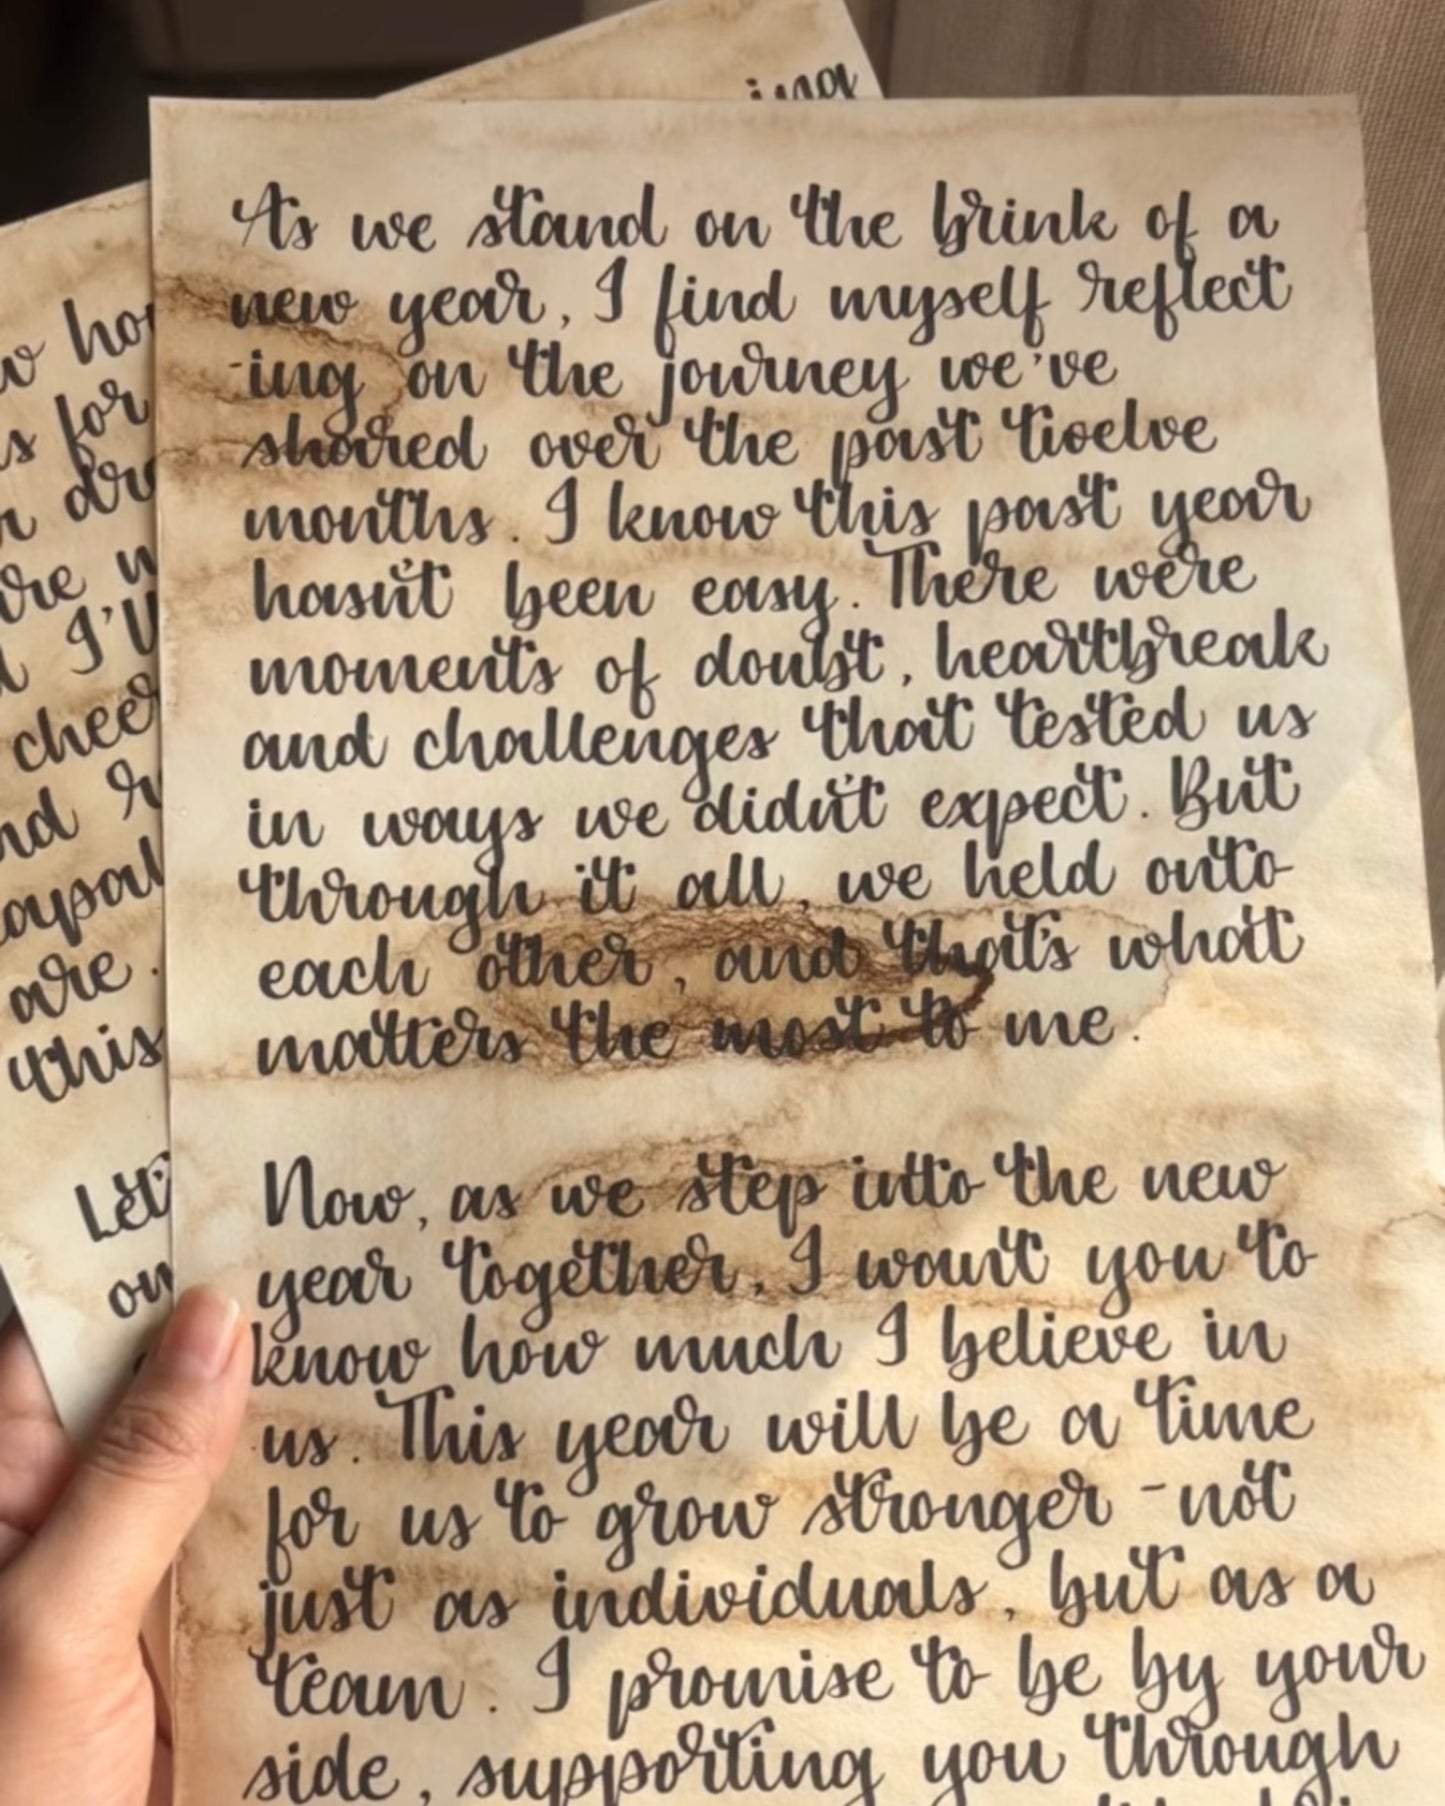 ing
As we stand on the brink of a
new year, I find myself reflect
-ing on the journey we've
shared over the past twelve
months. I know this past year
hasn't been easy. There were
moments of doubt, heartbreak
and challenges that tested us
in ways we didn't expect. But
through it all, we held onto
each other, and that's what
matters the most to me.
Now, as we step into the new
year together, I want you to
know how much I believe in
us. This year will be a time
for us to grow stronger - not
just as individuals, but as a
team. I promise to be by your
side, supporting you through
for
I'll
cheer
are.
this
Let